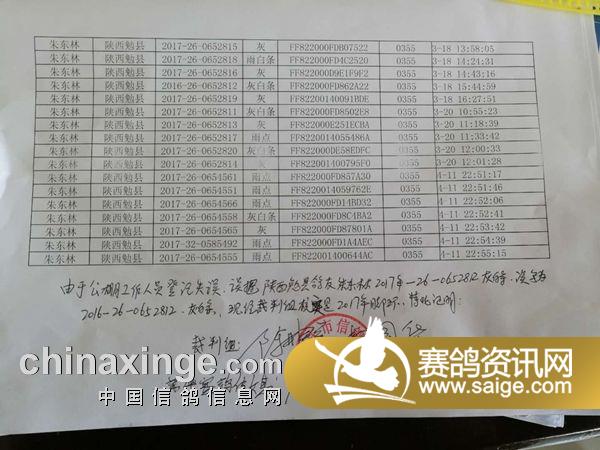 朱东林 陕西勉县 2017-26-0652815 灰 FF822000FDB07522 0355 3-18 13:58:05
朱东林 陕西勉县 2017-26-0652818 雨白条 FF822000FD4C2520 0355 3-18 14:24:31
朱东林 陕西勉县 2017-26-0652816 灰 FF822000D9E1F9F2 0355 3-18 14:43:16
朱东林 陕西勉县 2016-26-0652812 灰白条 FF822000FD862A22 0355 3-18 15:44:59
朱东林 陕西勉县 2017-26-0652819 灰 FF82200140091BDE 0355 3-18 16:27:51
朱东林 陕西勉县 2017-26-0652811 灰白条 FF822000FD8502E8 0355 3-20 10:55:23
朱东林 陕西勉县 2017-26-0652813 灰 FF822000E251ECBA 0355 3-20 11:18:39
朱东林 陕西勉县 2017-26-0652817 雨点 FF8220014055486A 0355 3-20 11:33:42
朱东林 陕西勉县 2017-26-0652820 灰白条 FF822000DE58EDFC 0355 3-20 12:00:33
朱东林 陕西勉县 2017-26-0652814 灰 FF822001400795F0 0355 3-20 12:01:28
朱东林 陕西勉县 2017-26-0654561 雨点 FF822000FD857A30 0355 4-11 22:51:17
朱东林 陕西勉县 2017-26-0654551 雨点 FF8220014059762E 0355 4-11 22:51:46
朱东林 陕西勉县 2017-26-0654566 雨点 FF822000FD14BD32 0355 4-11 22:52:08
朱东林 陕西勉县 2017-26-0654558 灰白条 FF822000FD8C4BA2 0355 4-11 22:52:41
朱东林 陕西勉县 2017-26-0654565 雨点 FF822000FD87801A 0355 4-11 22:53:02
朱东林 陕西勉县 2017-32-0585492 雨点 FF822000FD1A4AEC 0355 4-11 22:54:39
朱东林 陕西勉县 2017-26-0654555 雨点 FF822001400644AC 0355 4-11 22:55:15
由于公棚工作人员登记失误,误把陕西勉县鸽友朱东林2017年-26-0652812灰白条,误
2016-26-0652812.灰白条,现经裁判组核实是2017年 特此证明:
裁判组:
市信鸽
chinaxinge.com
中国信鸽信息网
赛鸽资讯网
www.saige.com